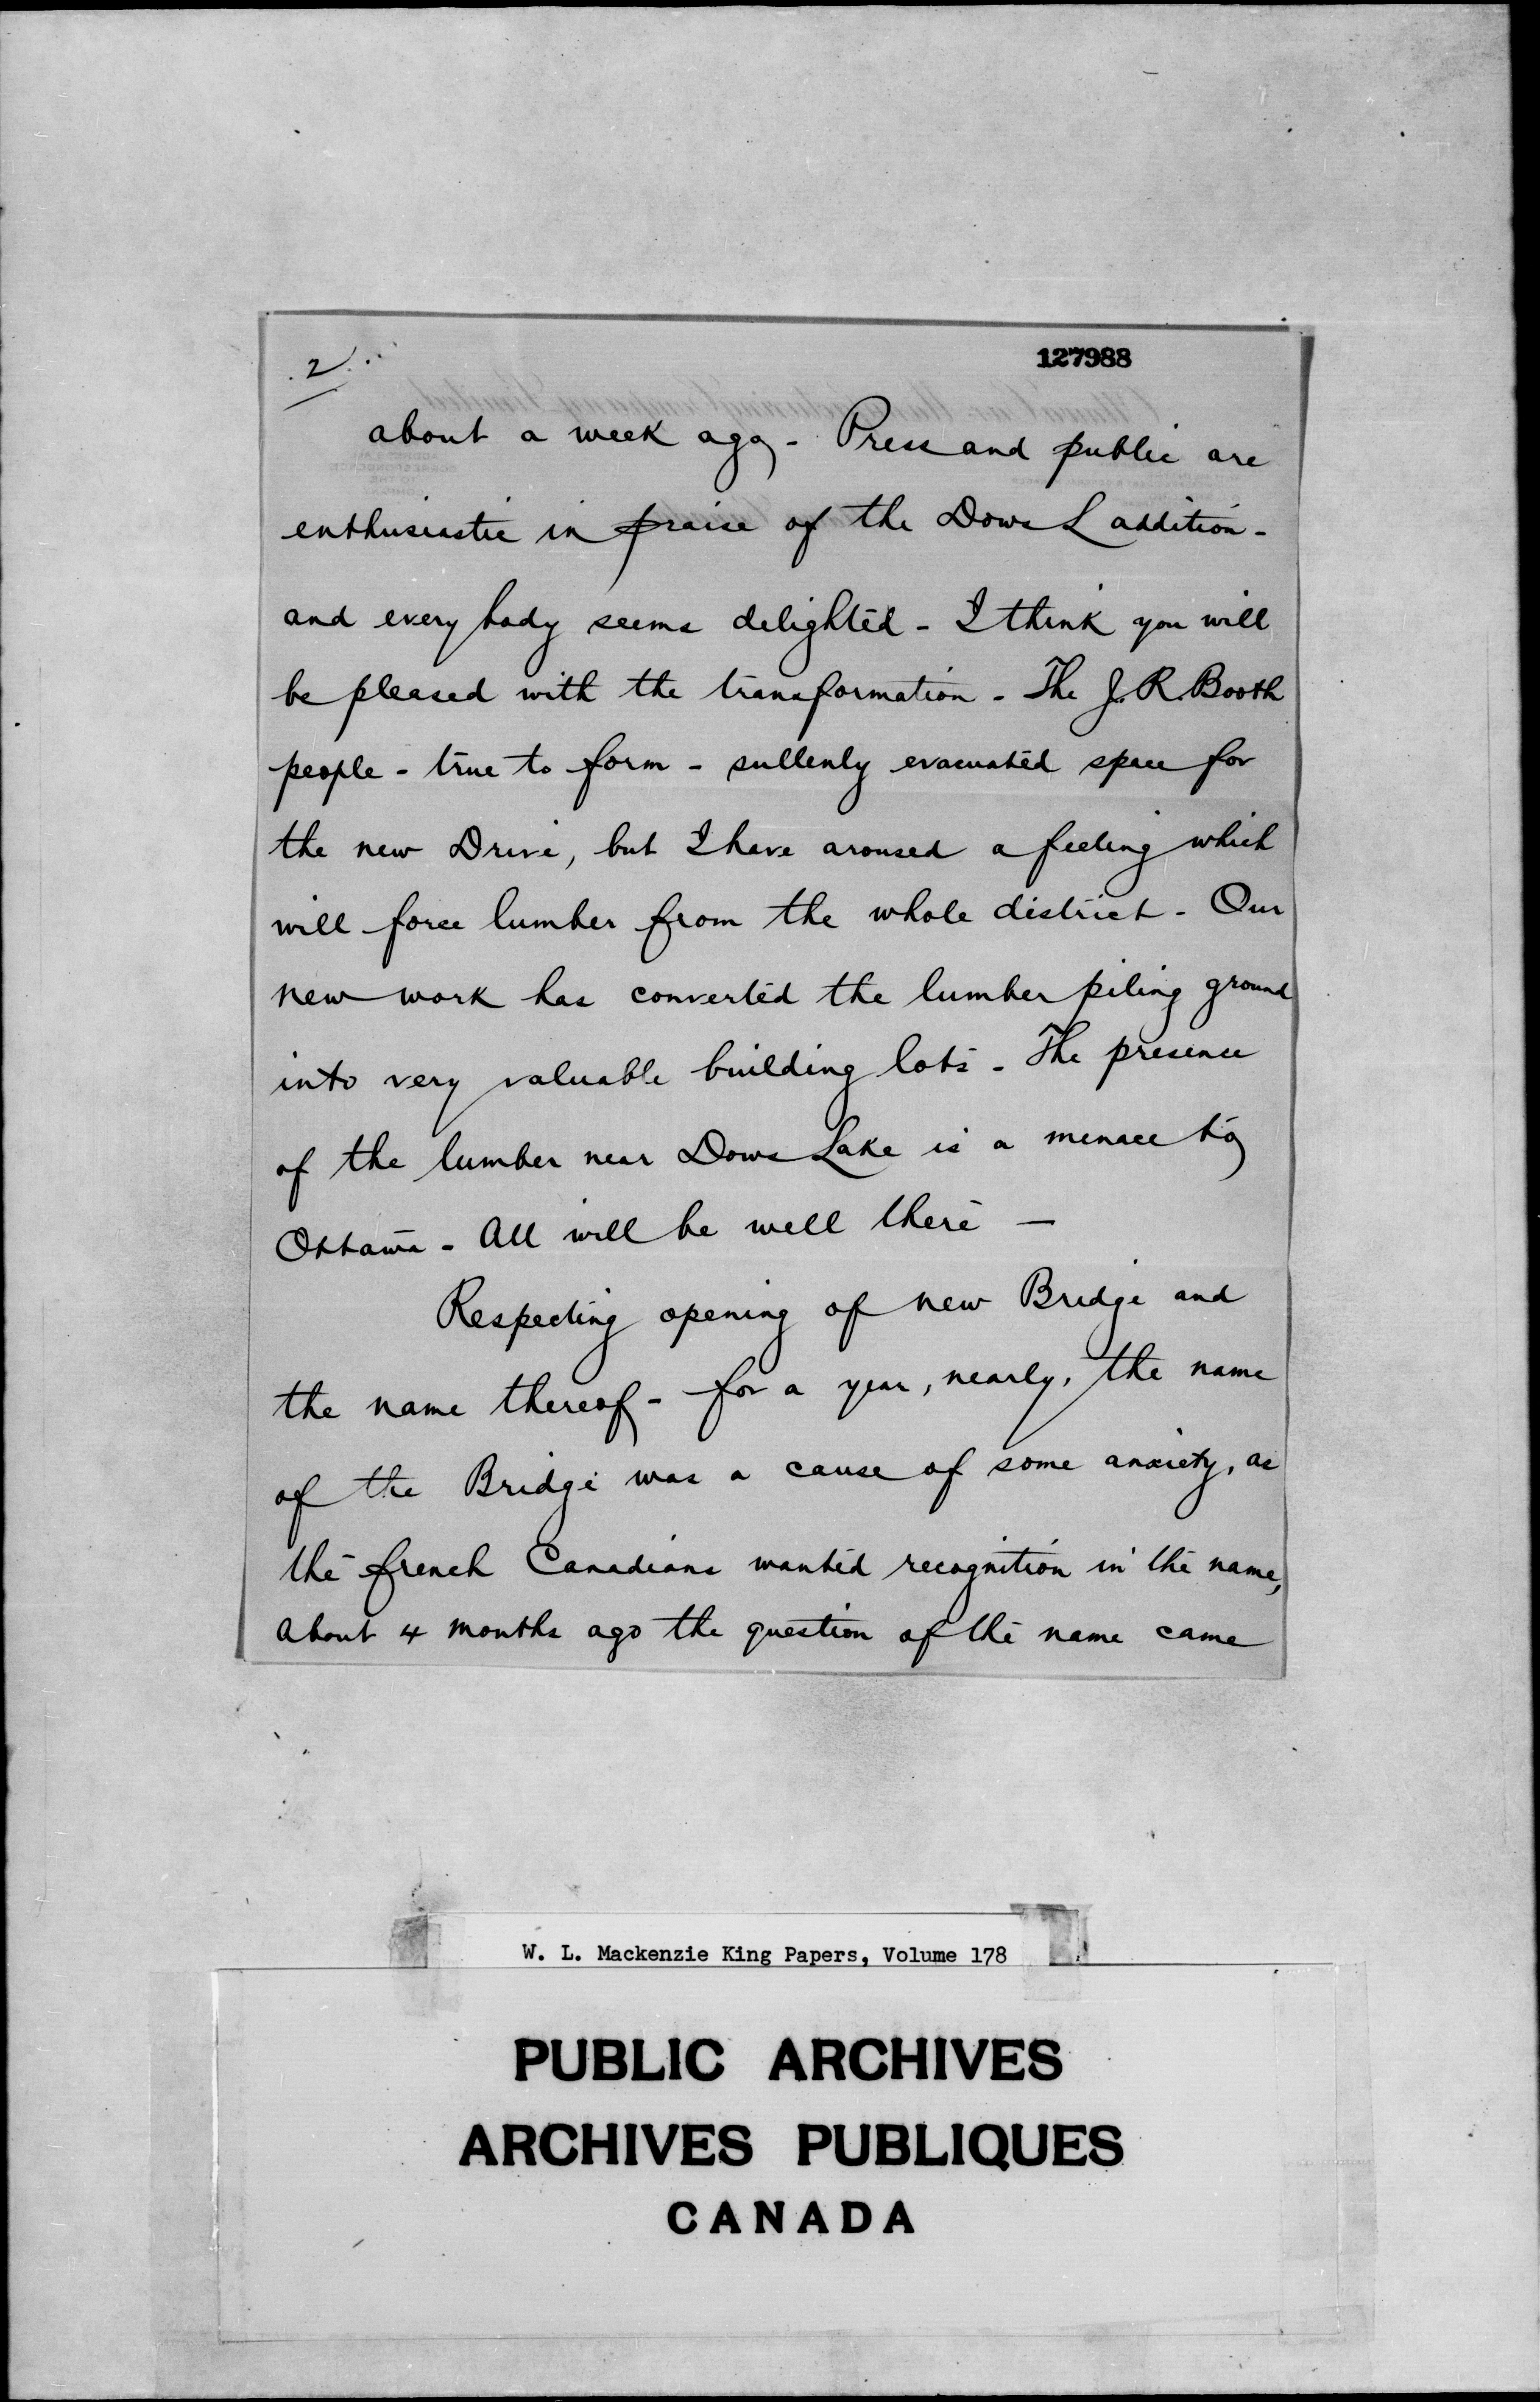 2
127988
about a week ago - Press and public are
enthusiastic in praise of the Dows L addition -
and every body seems delighted - I think you will
be pleased with the transformation - The J. R. Booth
people - true to form - sullenly evacuated space for
the new Drive, but I have aroused a feeling which
will force lumber from the whole district - Our
new work has converted the lumber piling ground
into very valuable building lots - The presence
of the lumber near Dows Lake is a menace to
Ottawa - All will be well there —
Respecting opening of new Bridge and
the name thereof - for a year, nearly, the name
of the Bridge was a cause of some anxiety, as
the french Canadians wanted recognition in the name,
About 4 months ago the question of the name came
W. L. Mackenzie King Papers, Volume 178
PUBLIC ARCHIVES
ARCHIVES PUBLIQUES
CANADA